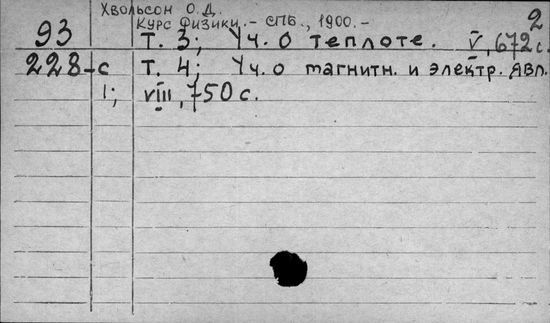 Хвольсон О.Д.
Курс физики. - СПб., 1900. - 2
93 Т. 3; Уч. о теплоте. V, 672 с.
228-с Т. 4; Уч. о магнитн. и электр. явл.
1; VIII, 750 с.